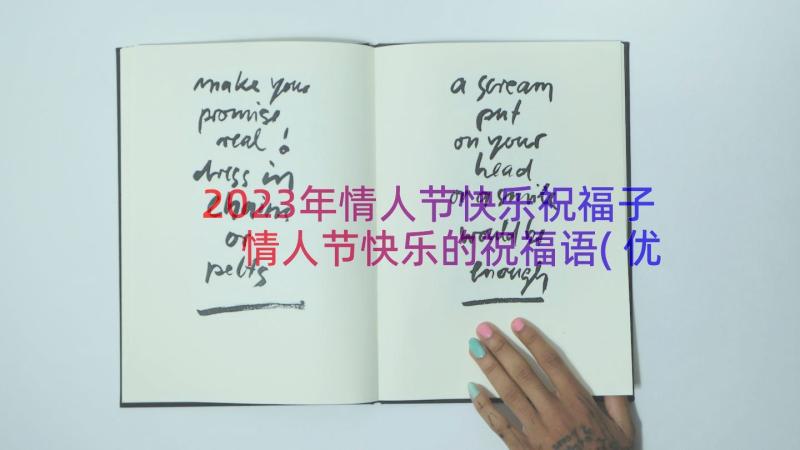 make your
promise
real!
dress in
chains
or
pelts
a scream
put
on your
head
or a smile
would be
enough
2023年情人节快乐祝福子
情人节快乐的祝福语(优